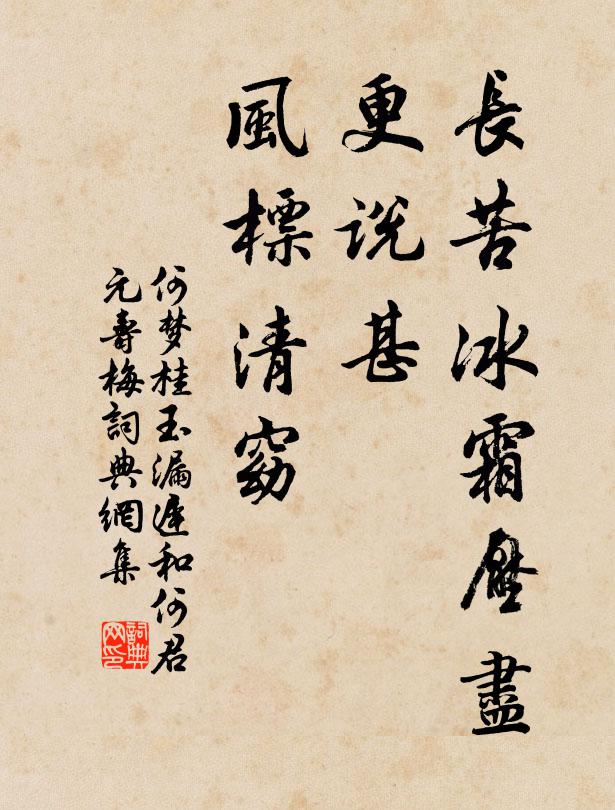 長苦冰霜壓盡
更説甚
風標清窈
何梦桂玉漏遲和何君
元壽梅詞典網集
詞典
网印